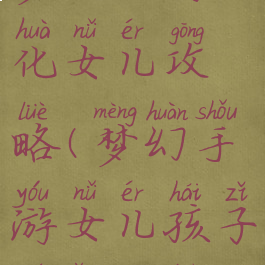 huà nǚ ér gōng
化女儿攻
lüè mèng huàn shǒu
略(梦幻手
yóu nǚ ér hái zǐ
游女儿孩子